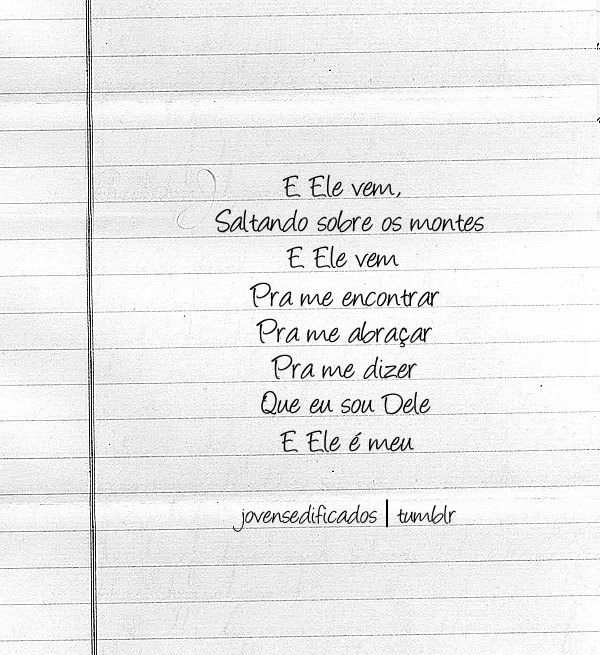 E Ele vem,
Saltando sobre os montes
E Ele vem
Pra me encontrar
Pra me abraçar
Pra me dizer
Que eu sou Dele
E Ele é meu
jovensedificados | tumblr